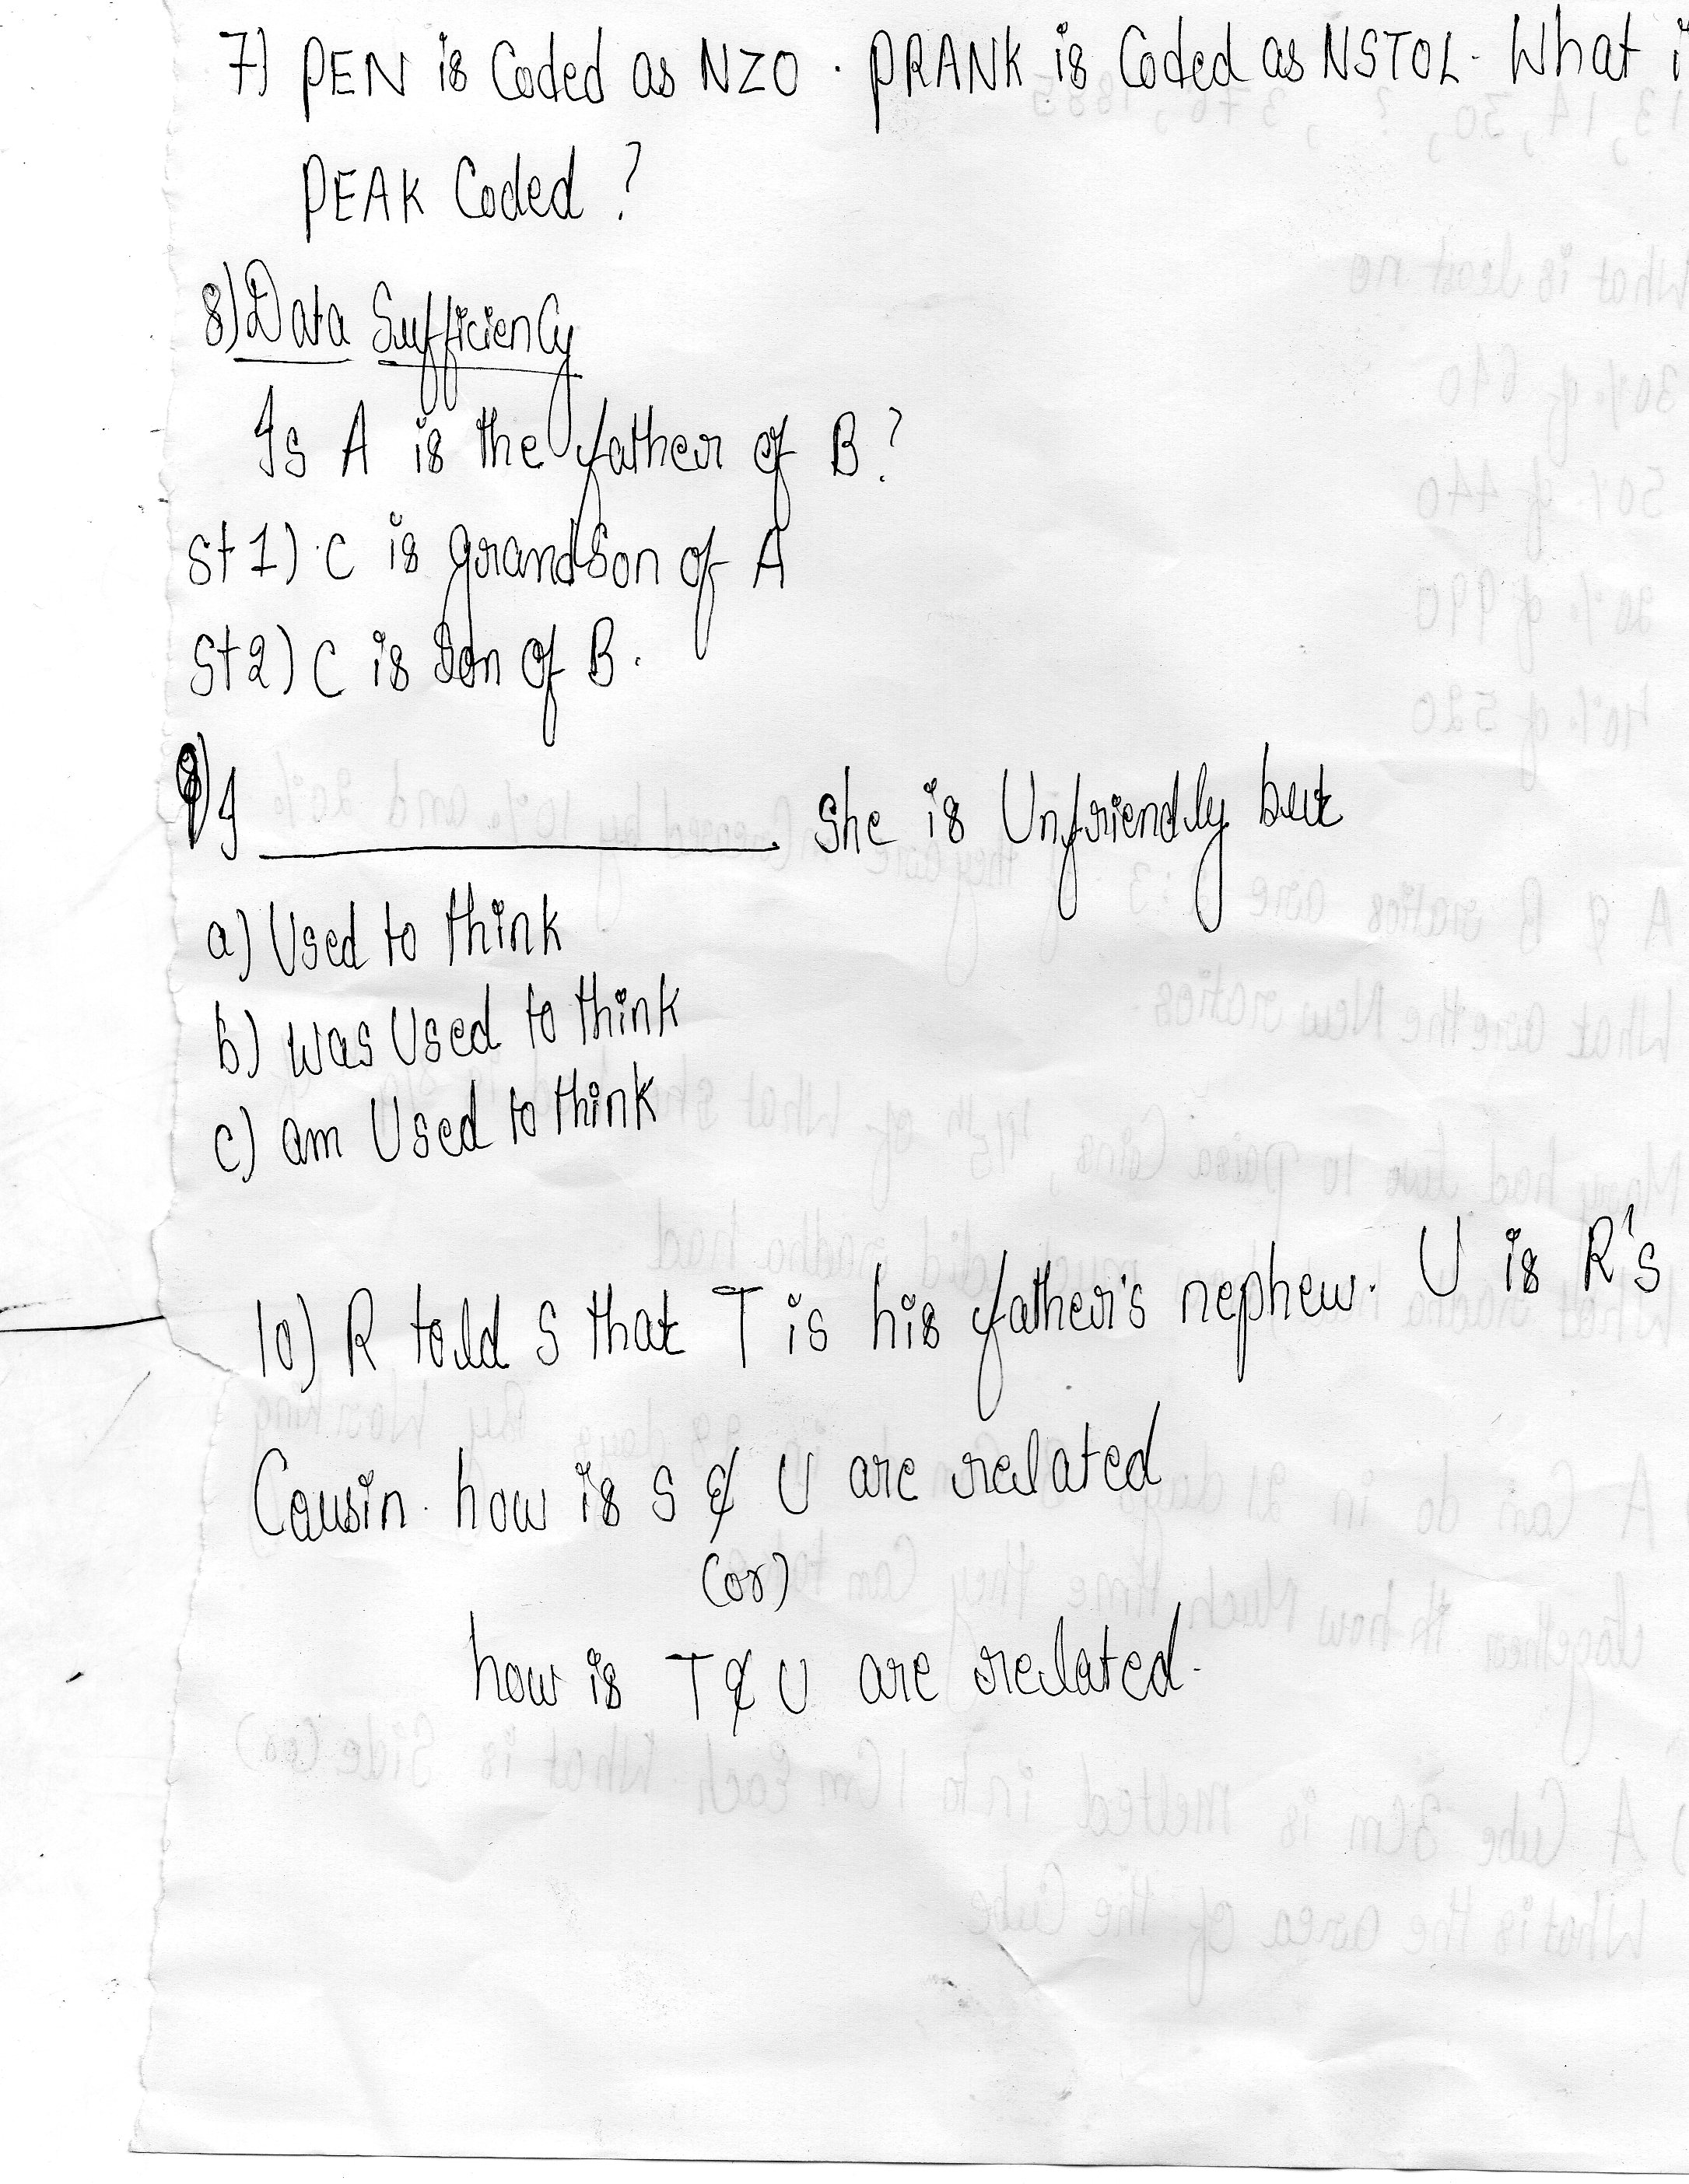 7) PEN is Coded as NZO. PRANK is Coded as NSTOL. What i
PEAK Coded ?
8) Data Sufficiency
Is A is the father of B?
St 1) C is grandson of A
St 2) C is son of B.
9) I ____________. She is Unfriendly but
a) Used to think
b) was Used to think
c) am Used to think
10) R told S that T is his father's nephew. U is R's
Cousin. how is S & U are related
(or)
how is T & U are related.